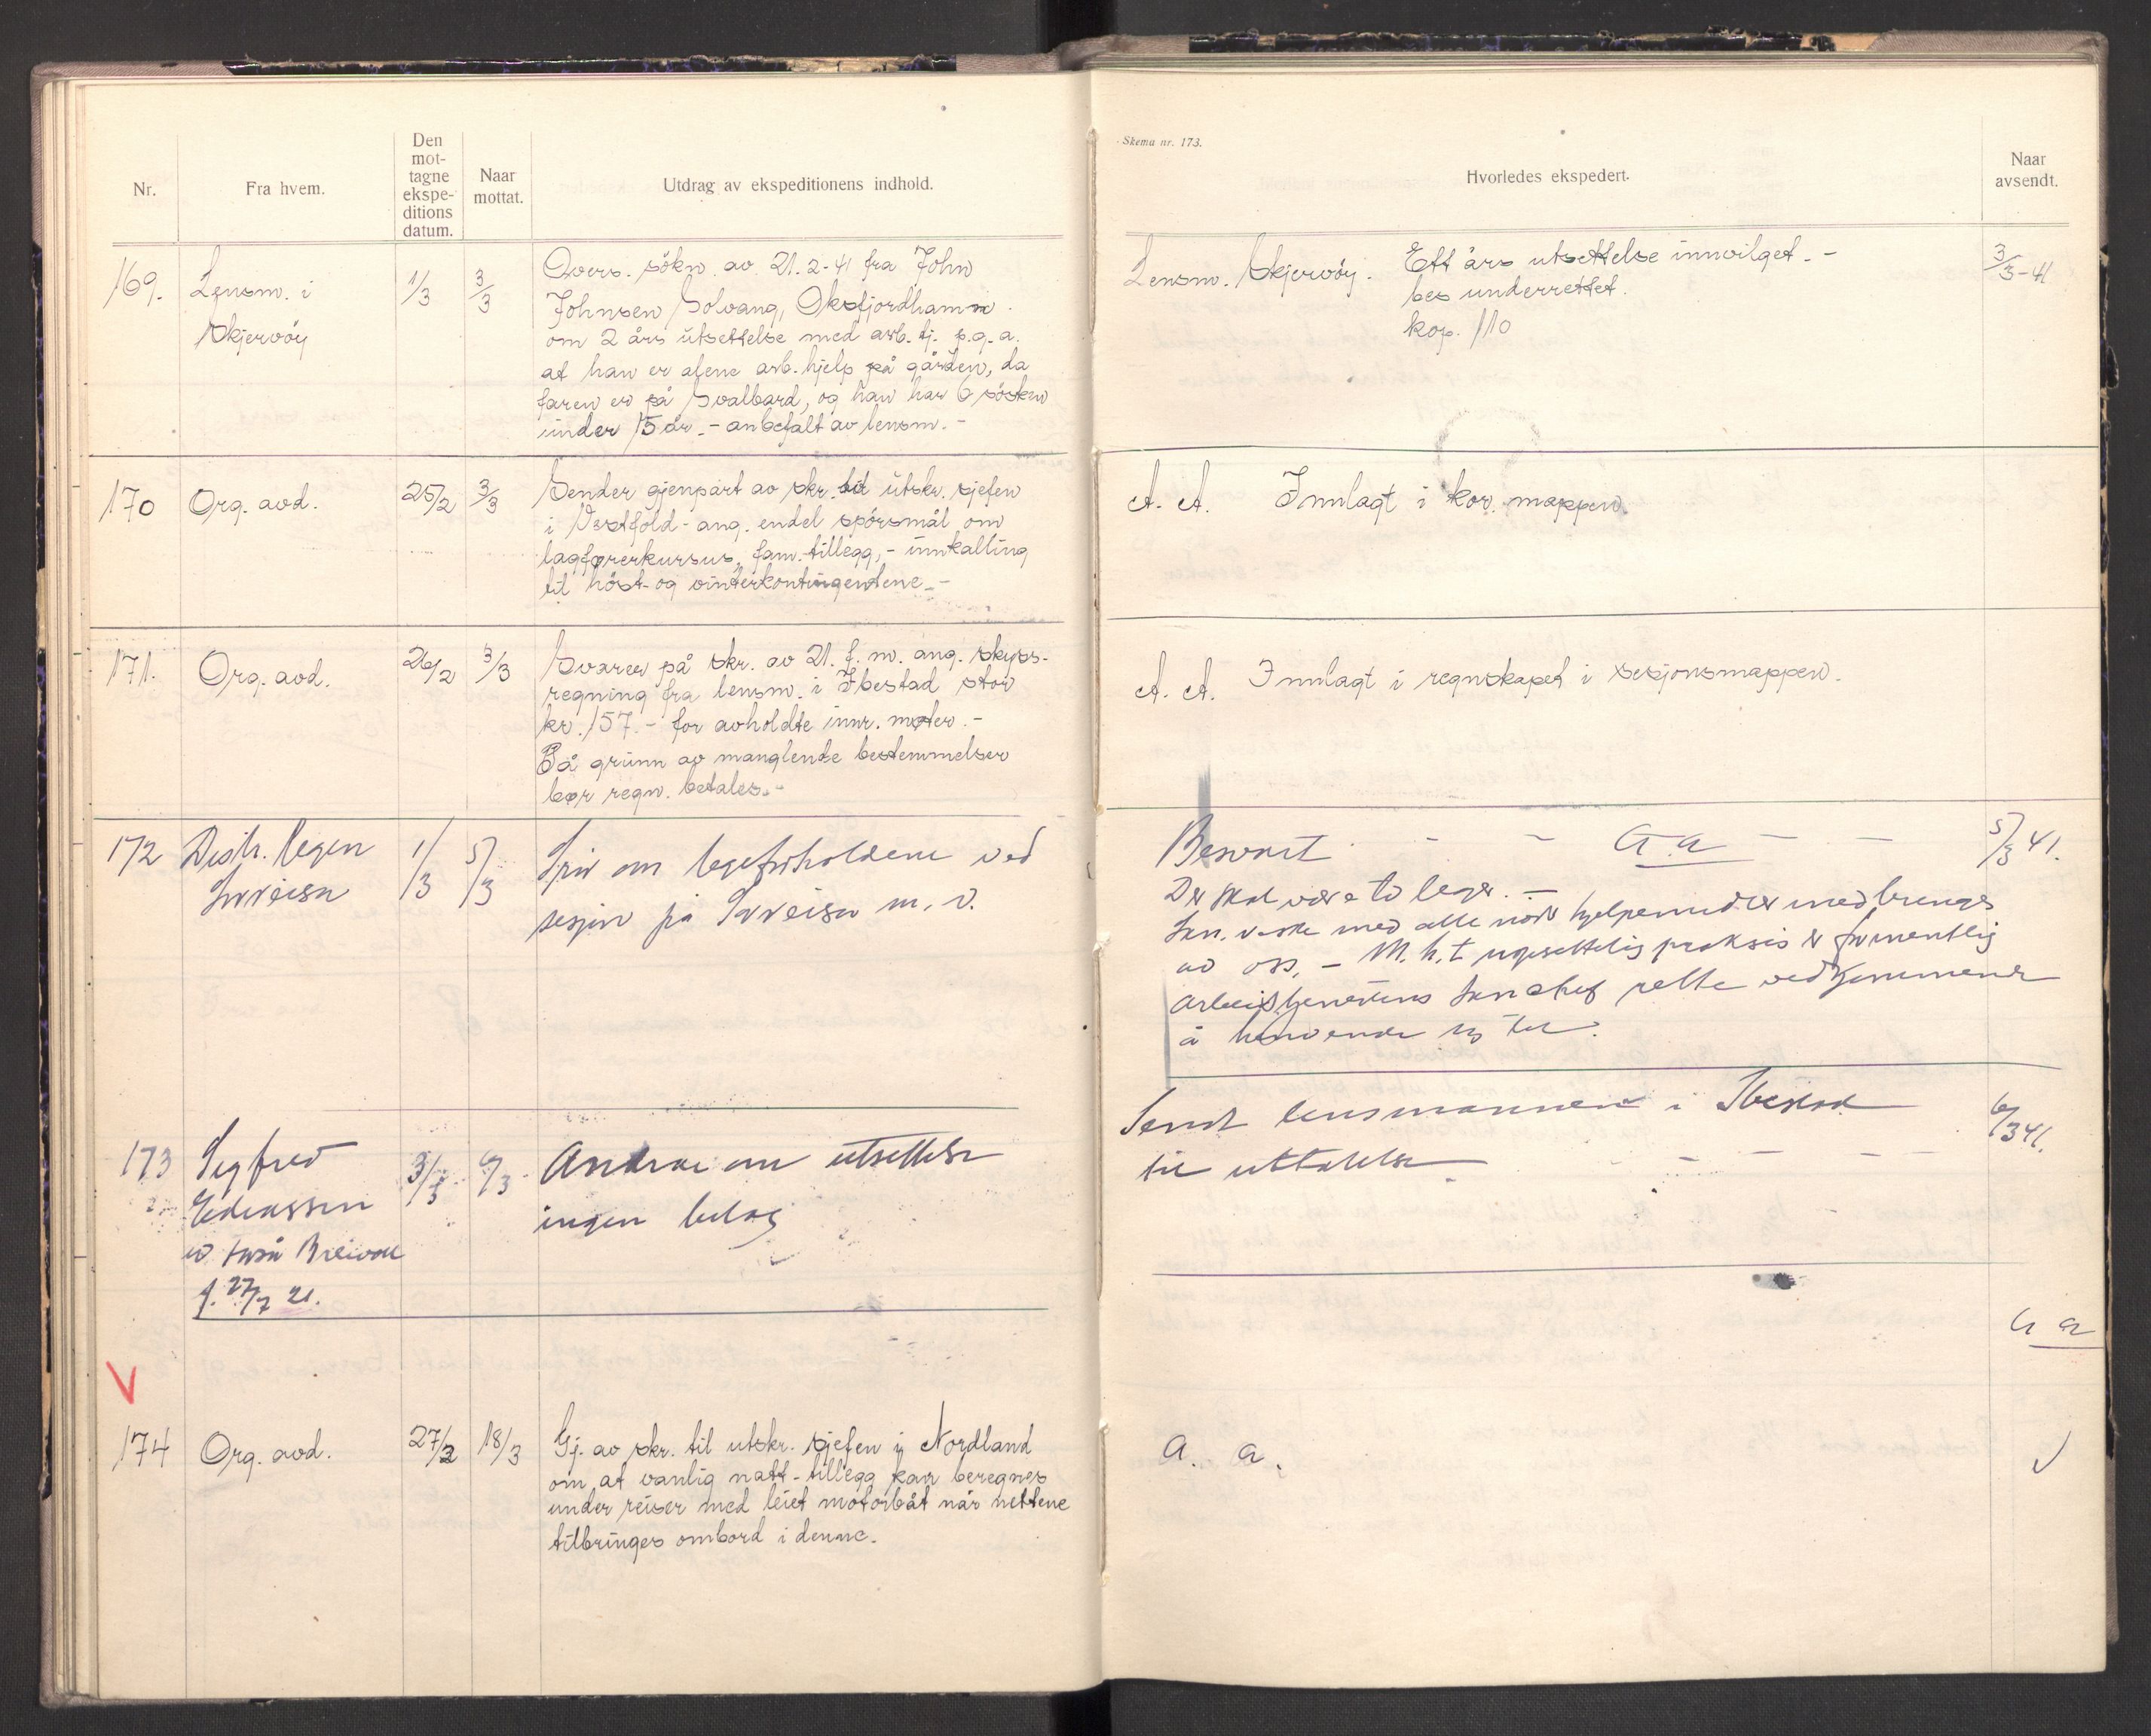 Nr.
Fra hvem.
Den
mot-
tagne
ekspe-
ditions
datum.
Naar
mottat.
Utdrag av ekspeditionens indhold.
Skema nr. 173.
Hvorledes ekspedert.
Naar
avsendt.
169. Lensm. i 1/3 3/3 Overs. sökn. av 21.2-41 fra John
Skjervöy Johnsen Solvang, Oksfjordhamn.
om 2 års utsettelse med arb. tj. p.g.a.
at han er alene arb. hjelp på gården, da
faren er på Svalbard, og han har 6 sösken
under 15 år. - anbefalt av lensm. -
Lensm. Skjervöy. Ett års utsettelse innvilget. - 3/3-41
bes underrettet.
kop. 110
170 Org. avd. 25/2 3/3 Sender gjenpart av skr. til utskr. sjefen
i Vestfold - ang. endel spörsmål om
lagførerkursus, fam. tillegg, - innkalling
til höst- og vinterkontingentene. -
A. A. Innlagt i kor. mappen.
171. Org. avd. 26/2 3/3 Svarer på skr. av 21. f. m. ang. skyss-
regning fra lensm. i Ibestad stor
kr. 157.- for avholdte innr. møter. -
På grunn av manglende bestemmelser
bør regn. betales. -
A. A. Innlagt i regnskapet i sesjonsmappen.
172 Distr. legen 1/3 5/3 Spör om legeforholdene ved
Sørreisa sesjon på Sørreisa m. v.
Besvart - - a a - - 5/3 41.
Der skal være to leger. -
San. veske med alle nödv hjelpemidler medbringes
av oss. - M. h. t. uopsettelig praksis er formentlig
Arbeidstjenestens San chef rette vedkommende
å henvende sig til.
173 Sigfred 3/3 6/3 Andrar om utsettelse
Edvardsen ingen bilag
Breivoll
f. 27/7 21.
Sendt lensmannen i Ibestad 6/3 41.
til uttalelse - - - -
a a
V
174 Org. avd. 27/2 18/3 Gj. av skr. til utskr. sjefen i Nordland
om at vanlig natt-tillegg kan beregnes
under reiser med leiet motorbåt når nettene
tilbringes ombord i denne.
a. a. V